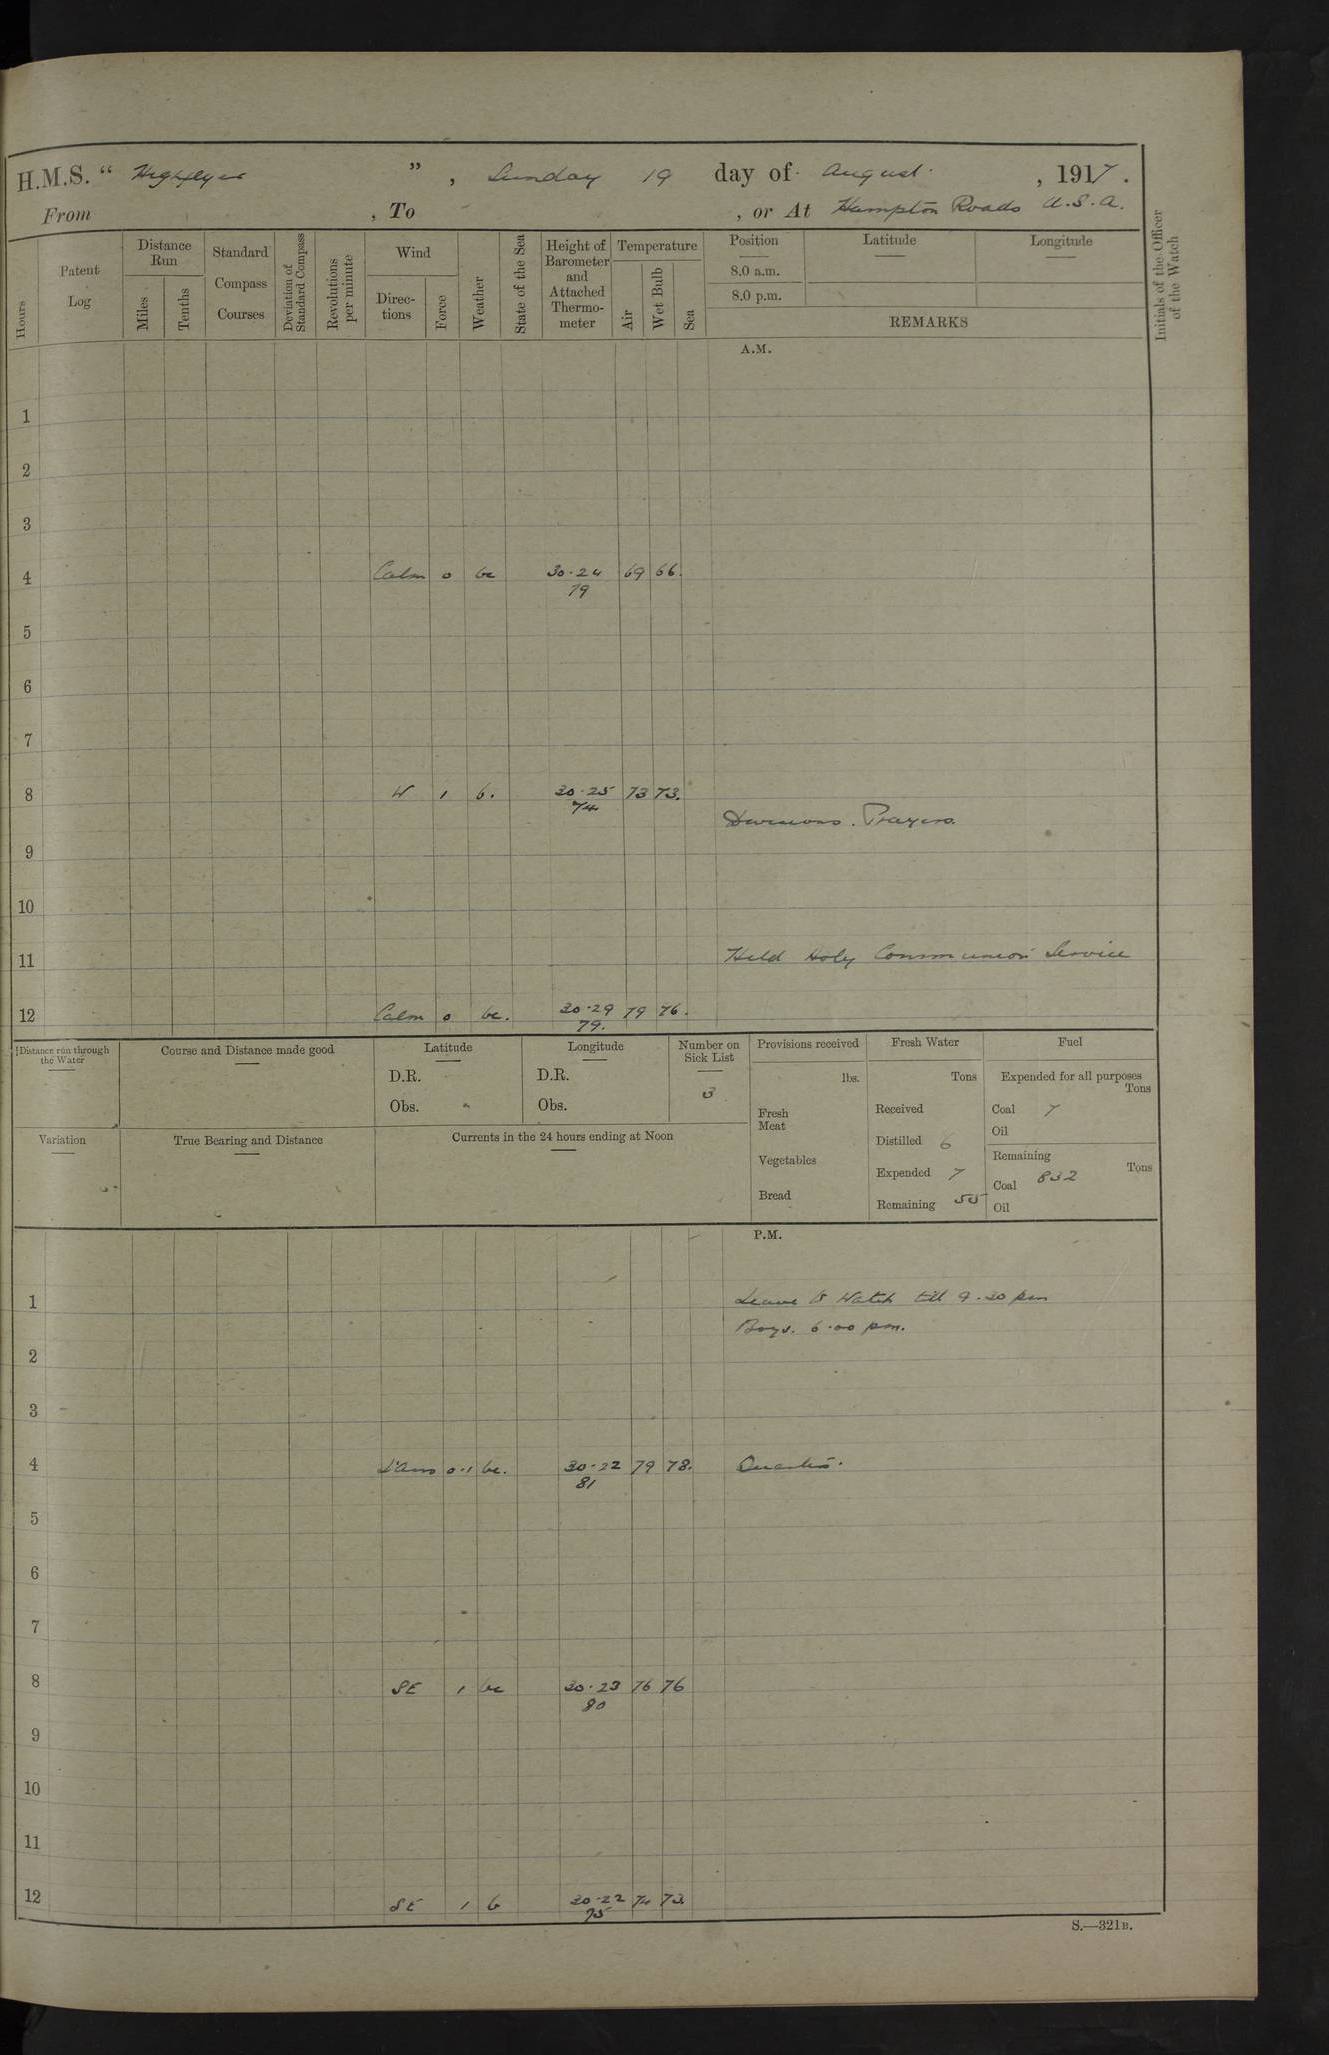 H.M.S. " Highflyer ", Sunday 19 day of August, 1917.
From , To , or At Hampton Roads U.S.A.
Hours
Patent Log
Distance Run
Miles
Tenths
Standard Compass Courses
Deviation of Standard Compass
Revolutions per minute
Wind
Directions
Force
Weather
State of the Sea
Height of Barometer and Attached Thermometer
Temperature
Air
Wet Bulb
Sea
Position
8.0 a.m.
8.0 p.m.
Latitude
Longitude
REMARKS
Initials of the Officer of the Watch
A.M.
1
2
3
4 Calm 0 bc 30.24 69 66.
79
5
6
7
8 W 1 b. 30.25 73 73.
74
Divisions. Prayers.
9
10
11 Held Holy Communion Service
12 Calm 0 bc. 30.29 79 76.
79.
Distance run through the Water
Course and Distance made good
Latitude
D.R.
Obs.
Longitude
D.R.
Obs.
Number on Sick List
3
Provisions received
lbs.
Fresh Meat
Vegetables
Bread
Fresh Water
Tons
Received
Distilled 6
Expended 7
Remaining 55
Fuel
Expended for all purposes
Tons
Coal 7
Oil
Remaining
Tons
Coal 832
Oil
Variation
True Bearing and Distance
Currents in the 24 hours ending at Noon
P.M.
1 Leave to Watch till 9.30 pm
Boys. 6.00 pm.
2
3
4 L'airs 0-1 bc. 30.22 79 78. Quarters.
81
5
6
7
8 SE 1 bc 30.23 76 76
80
9
10
11
12 SE 1 b 30.22 74 73
75
S.—321B.